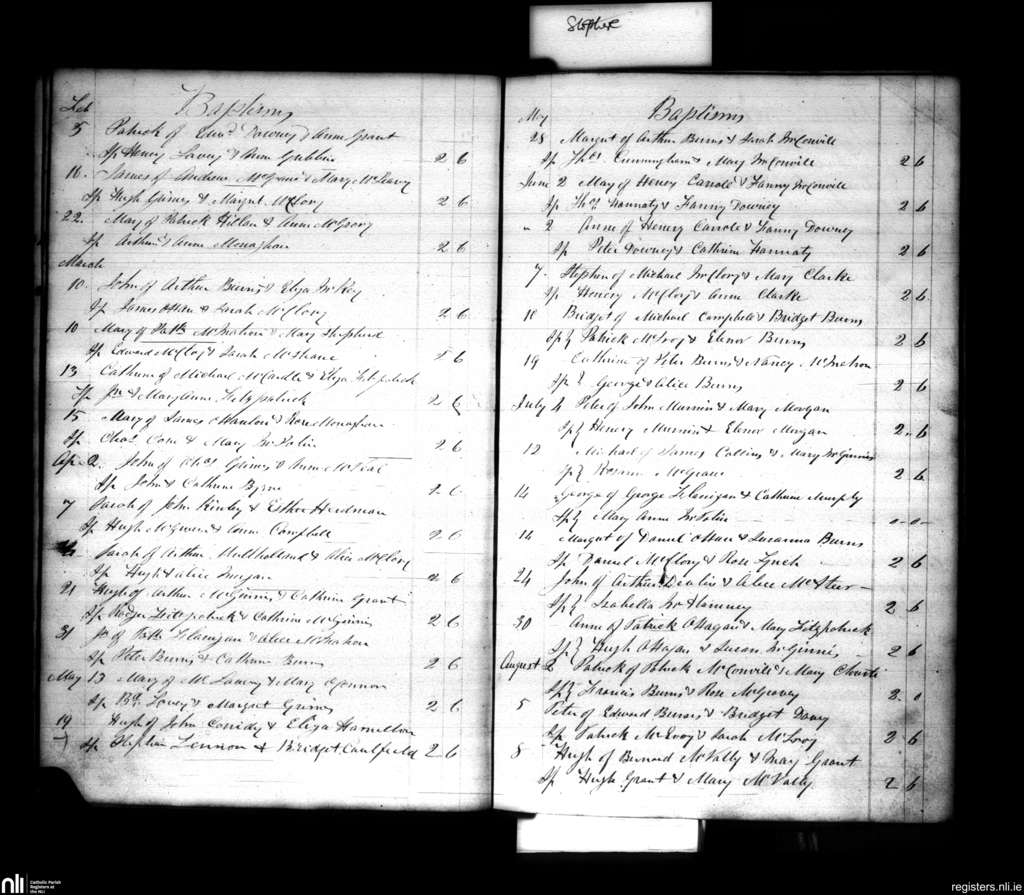 Stephen
Feb
Baptisms
5 Patrick of Edwd. Downey & Anne Grant
Sp Henry Lavery & Ann Gribbin 2 6
16. James of Andrew McGrane & Mary McLeavy
Sp Hugh Grimes & Margret McClory 2 6
22. Mary of Patrick Hillan & Anne McGrory
Sp Arthur & Anne Monaghan 2 6
March
10. John of Arthur Burns & Eliza McKey
Sp James & Sarah McClory 2 6
10 Mary of Patk McMahon & Mary Shepherd
Sp Edward McCloy & Sarah McShane 2 6
13 Cathrine of Michael McCardle & Eliza Fitzpatrick
Sp Jn & MaryAnne Fitzpatrick 2 6
15 Mary of James Hanlon & Rose Monaghan
Sp Chas & Mary McPolin 2 6
Apr. 2. John of Chas Grimes & Anne
Sp John & Cathrine Byrne 2 6
7 Sarah of John Kinley & Esther Herdman
Sp Hugh McGivern & Anne Campbell 2 6
Sarah of Arthur Mullholland & Alice McClory
Sp Hugh & Alice 2 6
21 Hugh of Arthur McGinnis & Cathrine Grant
Sp Rodger Fitzpatrick & Cathrine McGinnis 2 6
31 Jn of Patk Flanigan & Alice McMahon
Sp Peter Burns & Cathrine Burns 2 6
May 13 Mary of Ml Lavery & Mary O'Connor
Sp Bd. Lavery & Margret Grimes 2 6
19 Hugh of John & Eliza Hamelton
Sp Stephen Lennon & Bridget Caulfield 2 6
May
Baptisms
28 Margret of Arthur Burns & Sarah McConvile
Sp Thos Cunningham & Mary McConvile 2 6
June 2 May of Henry Carrole & Fanny McConvile
Sp Thos Hannaty & Fanny Downey 2 6
" 2 Anne of Henery Carrole & Fanny Downey
Sp Peter Downey & Cathrine Hannaty 2 6
7. Stephen of Michael McClory & Mary Clarke
Sp Henery McClory & Anne Clarke 2 6
18 Bridget of Michael Campbell & Bridget Burns
Sp Patrick McIvoy & Elenor Burns 2 6
19 Cathrine of Peter Burns & Nancy
Sp George & Alice Burns 2 6
July 4 Peter of John Murnin & Mary Morgan
Sp Henery Murnin & Elenor Morgan 2 6
12 Michael of James Collins & Mary McGinnis
Sp McGrane 2 6
14 George of George Flanigan & Cathrine Murphy
Sp Mary Anne McPolin 0-0-
14 Margret of Daniel OHare & Susanna Burns
Sp Daniel McClory & Rose Lynch 2 6
24 John of Arthur & Alice McAteer
Sp Isabella 2 6
30 Anne of Patrick OHagan & Mary Fitzpatrick
Sp Hugh OHagan & Susan McGinnis 2 6
August 2 Patrick of Patrick McConvile & Mary
Sp Francis Burns & Rose McGreevy 2. 0
5 Peter of Edward Burns & Bridget
Sp Patrick McEvoy & Sarah McEvoy 2 6
8 Hugh of Bernard McVally & Mary Grant
Sp Hugh Grant & Mary McVally 2 6
nli
Catholic Parish
Registers at
the NLI
registers.nli.ie